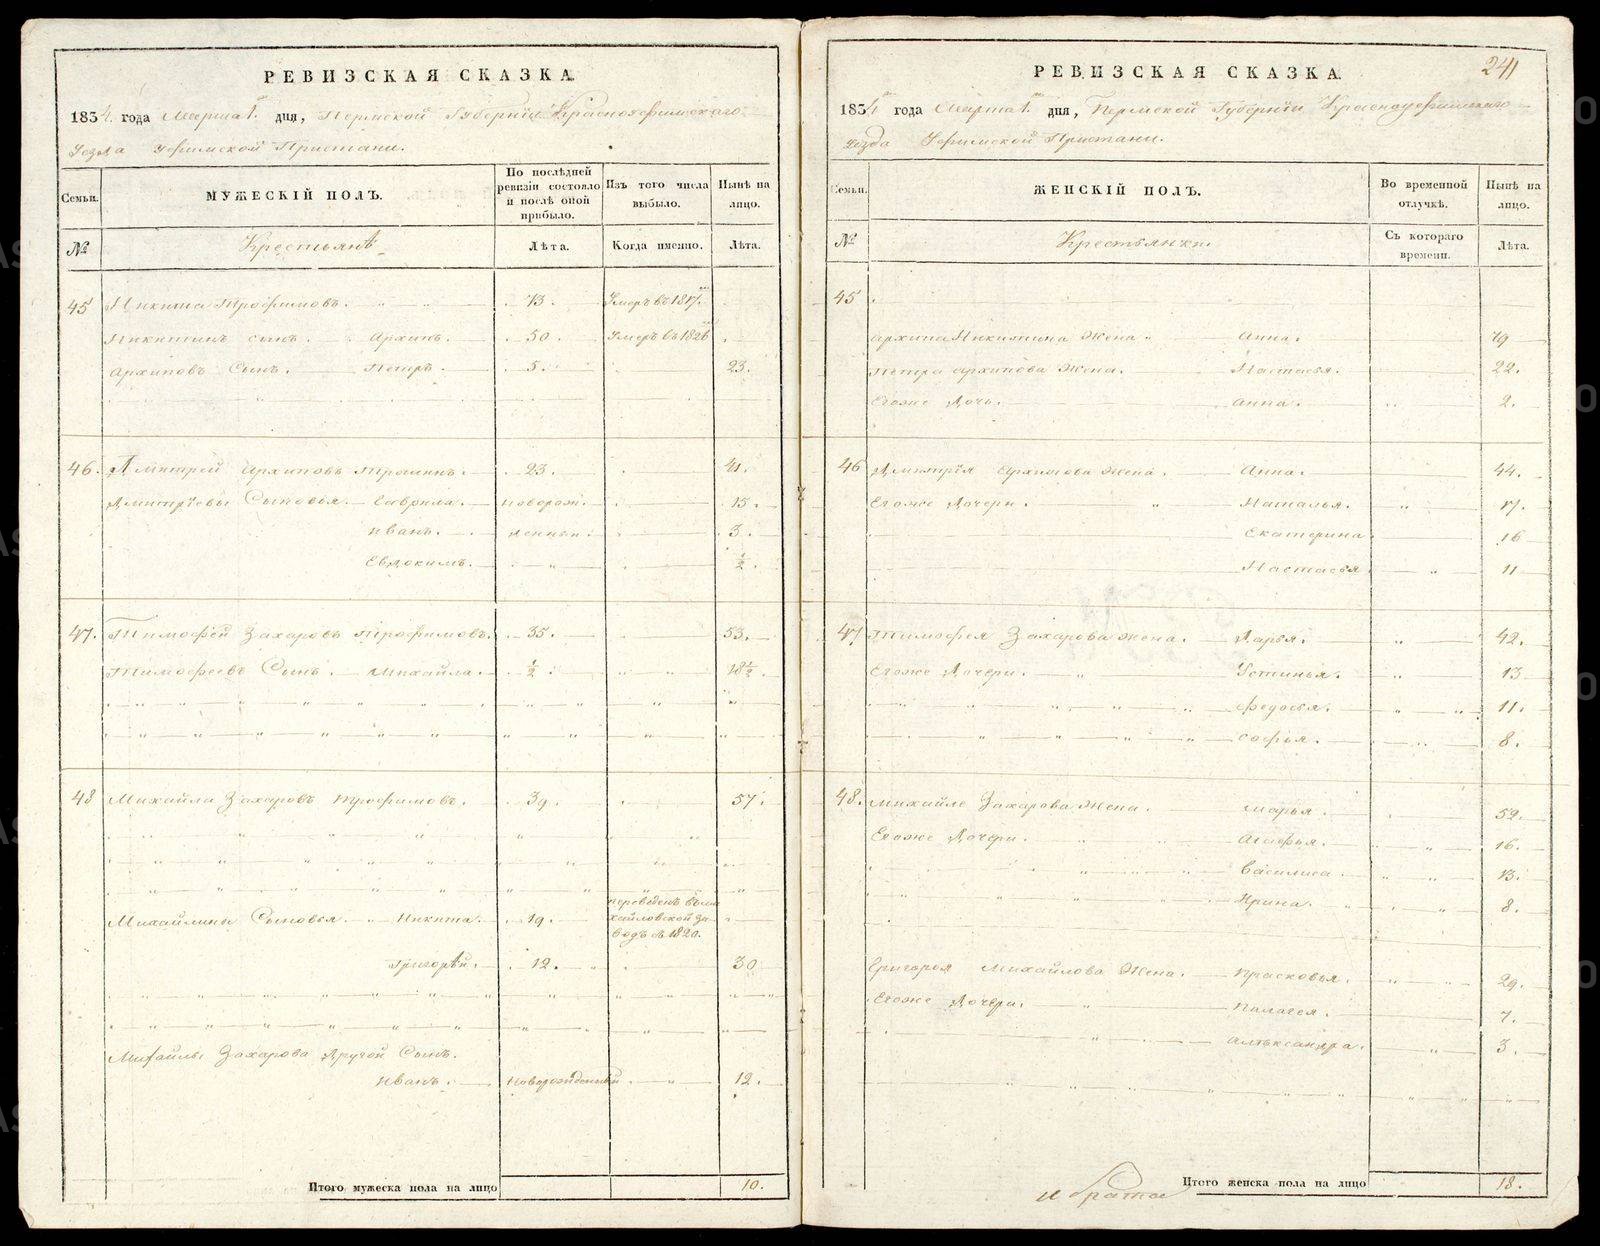 РЕВИЗСКАЯ СКАЗКА.
1834. года Марта 1. дня, Пермской Губернии Красноуфимскаго
Уезда Уфимской Пристани.
Семьи.
МУЖЕСКІЙ ПОЛЪ.
По послѣдней ревизіи состояло и послѣ оной прибыло.
Изъ того числа выбыло.
Нынѣ на лицо.
№
Крестьянѣ
Лѣта.
Когда именно.
Лѣта.
45 Никита Трофимовъ. 73. Умеръ въ 1817.
Никитинъ сынъ. Архипъ. 50. Умеръ въ 1826
Архиповъ Сынъ. Петръ. 5. 23.
46. Дмитрей Архиповъ Трошинъ. 23. 41.
Дмитріевы Сыновья. Гаврила. Новорож. 15.
Иванъ. денный. 3.
Евдокимъ. 1/2
47. Тимофей Захаровъ Трофимовъ. 35. 53.
Тимофеевъ Сынъ. Михайла. 1/2 18 1/2.
48 Михайла Захаровъ Трофимовъ. 39. 57.
Михайлины Сыновья. Никита. 19. переведенъ в Ми
хайловской За
водъ в 1820.
Григорѣй. 12. 30
Михайлы Захарова Другой Сынъ.
Иванъ. Новорожденный 12.
Итого мужеска пола на лицо 10.
241
РЕВИЗСКАЯ СКАЗКА.
1834 года Марта 1. дня, Пермской Губерніи Красноуфимскаго
Уезда Уфимской Пристани.
Семьи.
ЖЕНСКІЙ ПОЛЪ.
Во временной отлучкѣ.
Нынѣ на лицо.
№
Крестьянки.
Съ котораго времени.
Лѣта.
45
Архипа Никитина Жена Анна. 79
Петра Архипова Жена. Настасья. 22.
Егоже Дочь. Анна. 2.
46 Дмитрія Архипова Жена. Анна. 44.
Егоже Дочери. Наталья. 17.
Екатерина 16
Настасья 11
47 Тимофея Захарова Жена. Дарья. 42.
Егоже Дочери. Устинья. 13
Федосья. 11.
Софья. 8.
48. Михайле Захарова Жена. Марья. 59.
Егоже Дочери. Агафья. 16.
Василиса. 13.
Ирина. 8.
Григорья Михайлова Жена. Прасковья. 29.
Егоже Дочери. Пилагея. 7.
Алѣксандра. 3.
Итого женска пола на лицо 18.
и брата